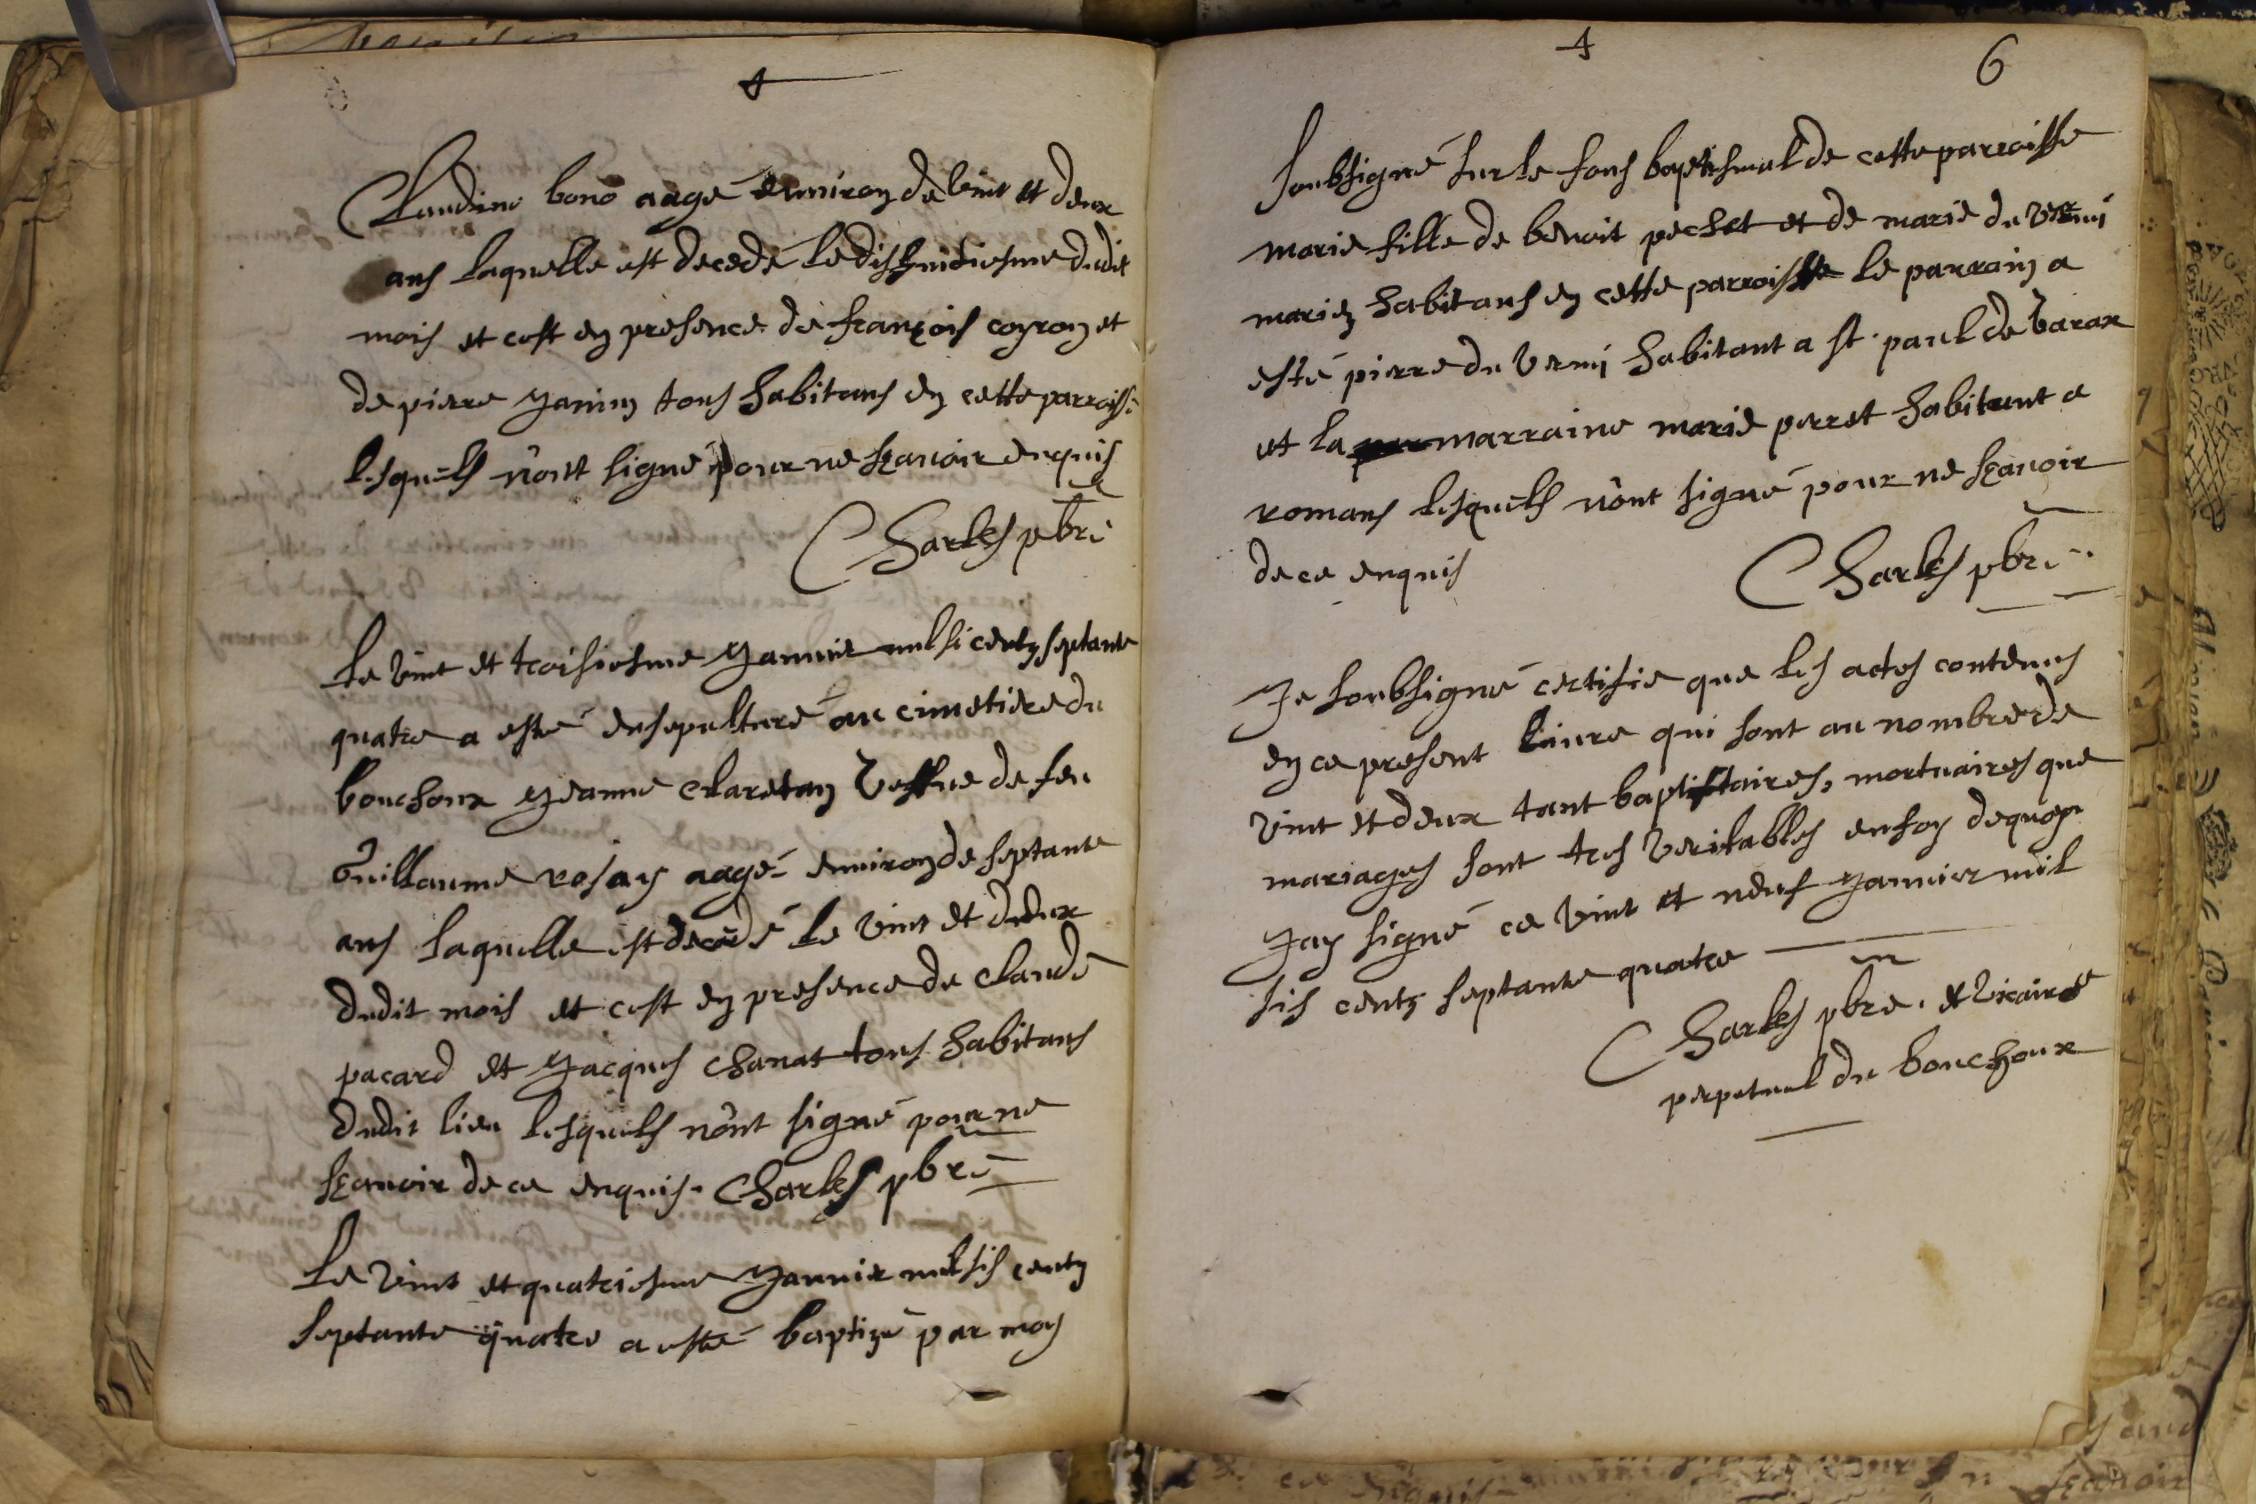 Claudine bono aagé environ de vint et deux
ans laquelle est decedé le dishuictiesme dudit
mois et cest en presence de françois coyron et
de pierre yanin tous habitans en cette parroisse
lesquels n'ont signé pour ne sçavoir enquis
Charles pbre
Le vint et troisiesme yanvier mil si centz septante
quatre a esté ensepulturé au cimetiere du
bouchoux yeanne claretan veffve de feu
Guillaume rosay aagé environ de septante
ans laquelle est decedé le vint et deux
dudit mois et cest en presence de claude
pacard et yacques chanat tous habitans
dudit lieu lesquels n'ont signé pour ne
sçavoir de ce enquis. Charles pbre
Le vint et quatriesme yanvier mil sis centz
septante quatre a esté baptizé par moy
6
soubsigné sur le fons baptismal de cette parroisse
marie fille de benoit pechet et de marie du verni
mariez habitans en cette parroisse le parrain a
esté pierre du verni habitant a st. paul de varax
et la marraine marie perret habitant a
romans lesquels n'ont signé pour ne sçavoir
de ce enquis Charles pbre
Je soubsigné certifie que les actes contenus
en ce present livre qui sont au nombre de
vint et deux tant baptistaires, mortuaires que
mariages sont tres veritables en foy dequoy
yay signé ce vint et neuf yanvier mil
sis centz septante quatre
Charles pbre. et vicaire
perpetuel du bouchoux